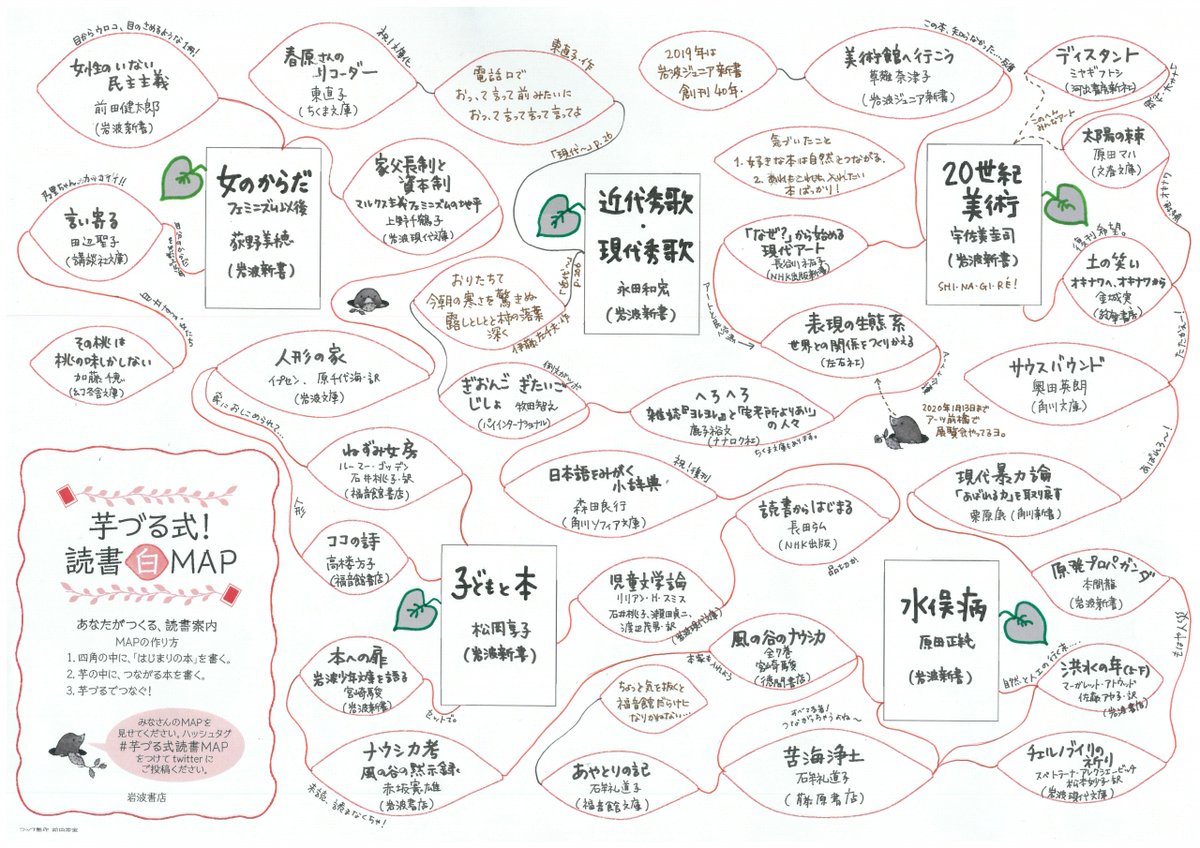 目からウロコ、目のさめるような1冊!
女性のいない
民主主義
前田健太郎
(岩波新書)
春原さんの
リコーダー
東直子
(ちくま文庫)
祝!文庫化
東直子・作
電話口で
おっって言って前みたいに
おっって言って言って言ってよ
「現代〜」P.26
2019年は
岩波ジュニア新書
創刊40年.
この本、知らなかった…
美術館へ行こう
草薙奈津子
(岩波ジュニア新書)
ディスタント
ミヤギフトシ
(河出書房新社)
このへん
みんなアート
太陽の棘
原田マハ
(文春文庫)
気づいたこと
1. 好きな本は自然とつながる.
2. あれもこれも入れたい
本ばっかり!
女のからだ
フェミニズム以後
荻野美穂
(岩波新書)
家父長制と
資本制
マルクス主義フェミニズムの地平
上野千鶴子
(岩波現代文庫)
近代秀歌
・
現代秀歌
永田和宏
(岩波新書)
20世紀
美術
宇佐美圭司
(岩波新書)
SHI・NA・GI・RE!
乃里ちゃん、カッコイイ!!
言い寄る
田辺聖子
(講談社文庫)
「なぜ?」から始める
現代アート
長谷川祐子
(NHK出版新書)
復刊希望。
土の笑い
オキナワへ、オキナワから
金城実
(筑摩書房)
おりたちて
今朝の寒さを驚きぬ
露しとしとと柿の落葉
深く
伊藤左千夫・作
表現の生態系
世界との関係をつくりかえる
(左右社)
その桃は
桃の味しかしない
加藤千恵
(幻冬舎文庫)
人形の家
イプセン、原千代海・訳
(岩波文庫)
ぎおんご ぎたいご
じしょ 牧田智之
(パイインターナショナル)
へろへろ
雑誌『ヨレヨレ』と「宅老所よりあい」
の人々
鹿子裕文
(ナナロク社)
ちくま文庫もあります。
2020年1月13日まで
アーツ前橋で
展覧会やってるヨ。
サウスバウンド
奥田英朗
(角川文庫)
たたかえー!
あばれろ〜!
家におしこめられて?…
ねずみ女房
ルーマー・ゴッデン
石井桃子・訳
(福音館書店)
人形
祝!復刊
日本語をみがく
小辞典
森田良行
(角川ソフィア文庫)
読書からはじまる
長田弘
(NHK出版)
現代暴力論
「あばれる力」を取り戻す
栗原康 (角川新書)
ココの詩
高楼方子
(福音館書店)
子どもと本
松岡享子
(岩波新書)
児童文学論
リリアン・H・スミス
石井桃子、瀬田貞二、
渡辺茂男・訳
(岩波現代文庫)
水俣病
原田正純
(岩波新書)
原発プロパガンダ
本間龍
(岩波新書)
本への扉
岩波少年文庫を語る
宮崎駿
(岩波新書)
セットで☆
風の谷のナウシカ
全7巻
宮崎駿
(徳間書店)
ちょっと気を抜くと
福音館だらけに
なりかねない…
自然とヒトの行く末…
洪水の年(上下)
マーガレット・アトウッド
佐藤アヤ子・訳
(岩波書店)
ナウシカ考
風の谷の黙示録
赤坂憲雄
(岩波書店)
未読、読まなくちゃ!
あやとりの記
石牟礼道子
(福音館文庫)
すべて名著!
つながらちゃうよね〜
苦海浄土
石牟礼道子
(藤原書店)
チェルノブイリの
祈り
スベトラーナ・アレクシエービッチ
松本妙子・訳
(岩波現代文庫)
芋づる式!
読書白MAP
あなたがつくる、読書案内
MAPの作り方
1. 四角の中に、「はじまりの本」を書く。
2. 芋の中に、つながる本を書く。
3. 芋づるでつなぐ!
みなさんのMAPを
見せてください。ハッシュタグ
#芋づる式読書MAP
をつけてtwitterに
ご投稿ください。
岩波書店